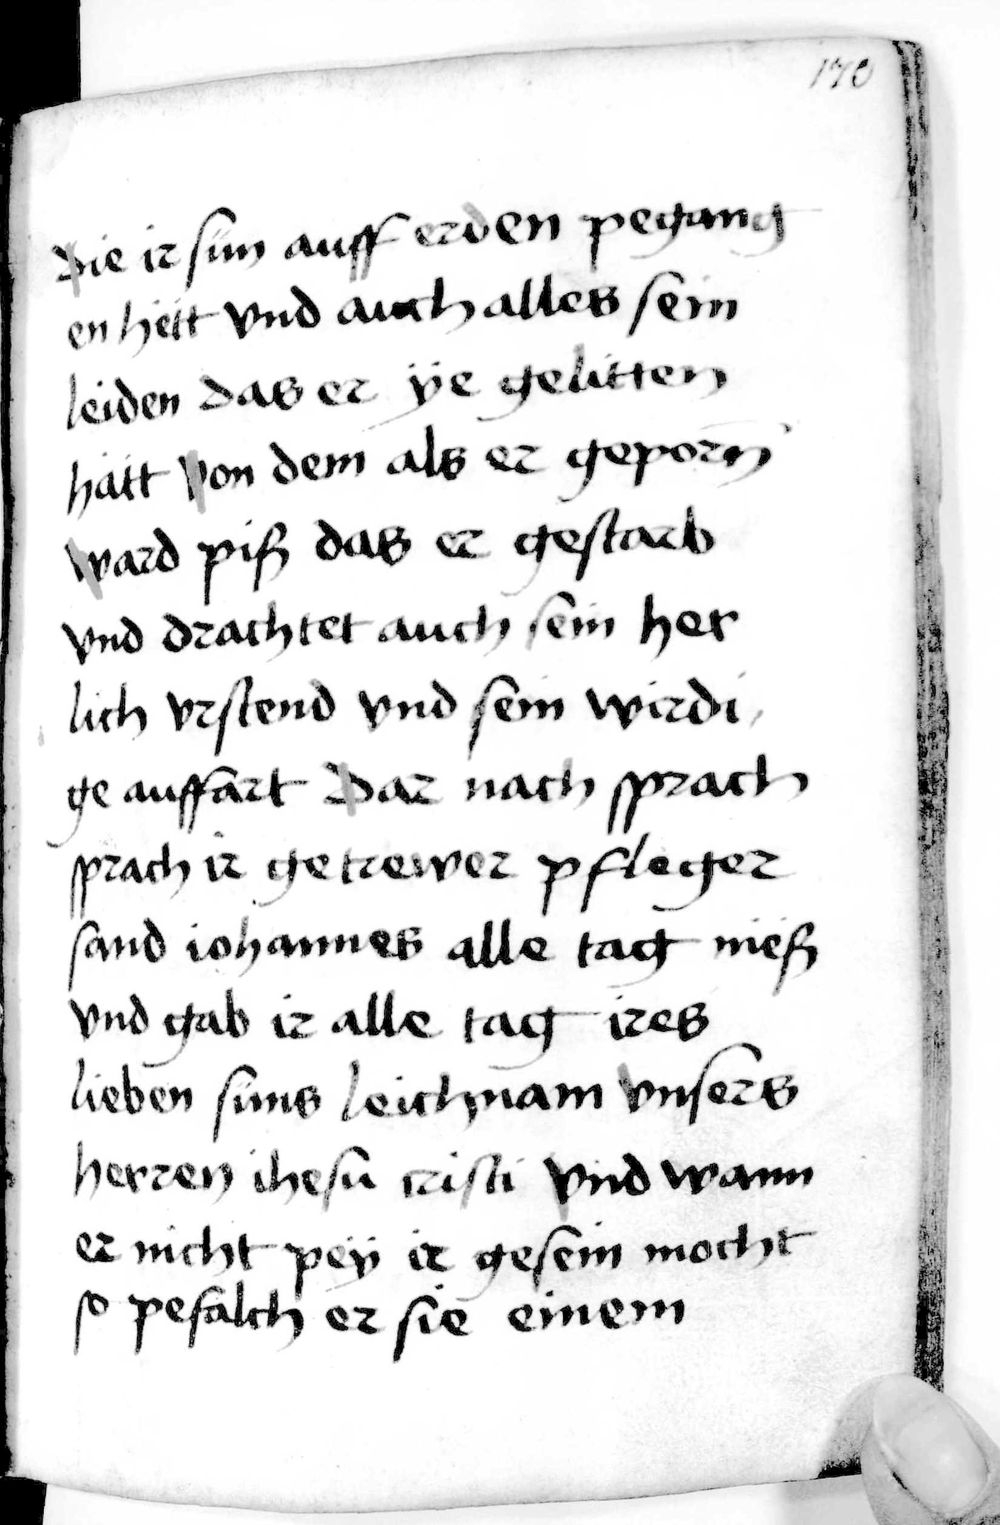 170
Die ir sün auff erden pegang
en hëtt vnd auch alles sein
leiden das er ÿe gelitten
hátt von dem als er geporn̄
ward piß das er gestarb
vnd drachtet auch sein her
lich vrstend vnd sein wirdi
ge auffart Dar nach sprach
sprach ir getrewer pfleger
sand iohannes alle tag mëß
vnd gab ir alle tag ires
lieben süns leichnam vnsers
herren ihesu cristi Vnd wann
er nicht peÿ ir gesein mocht
so pefalch er sie einem